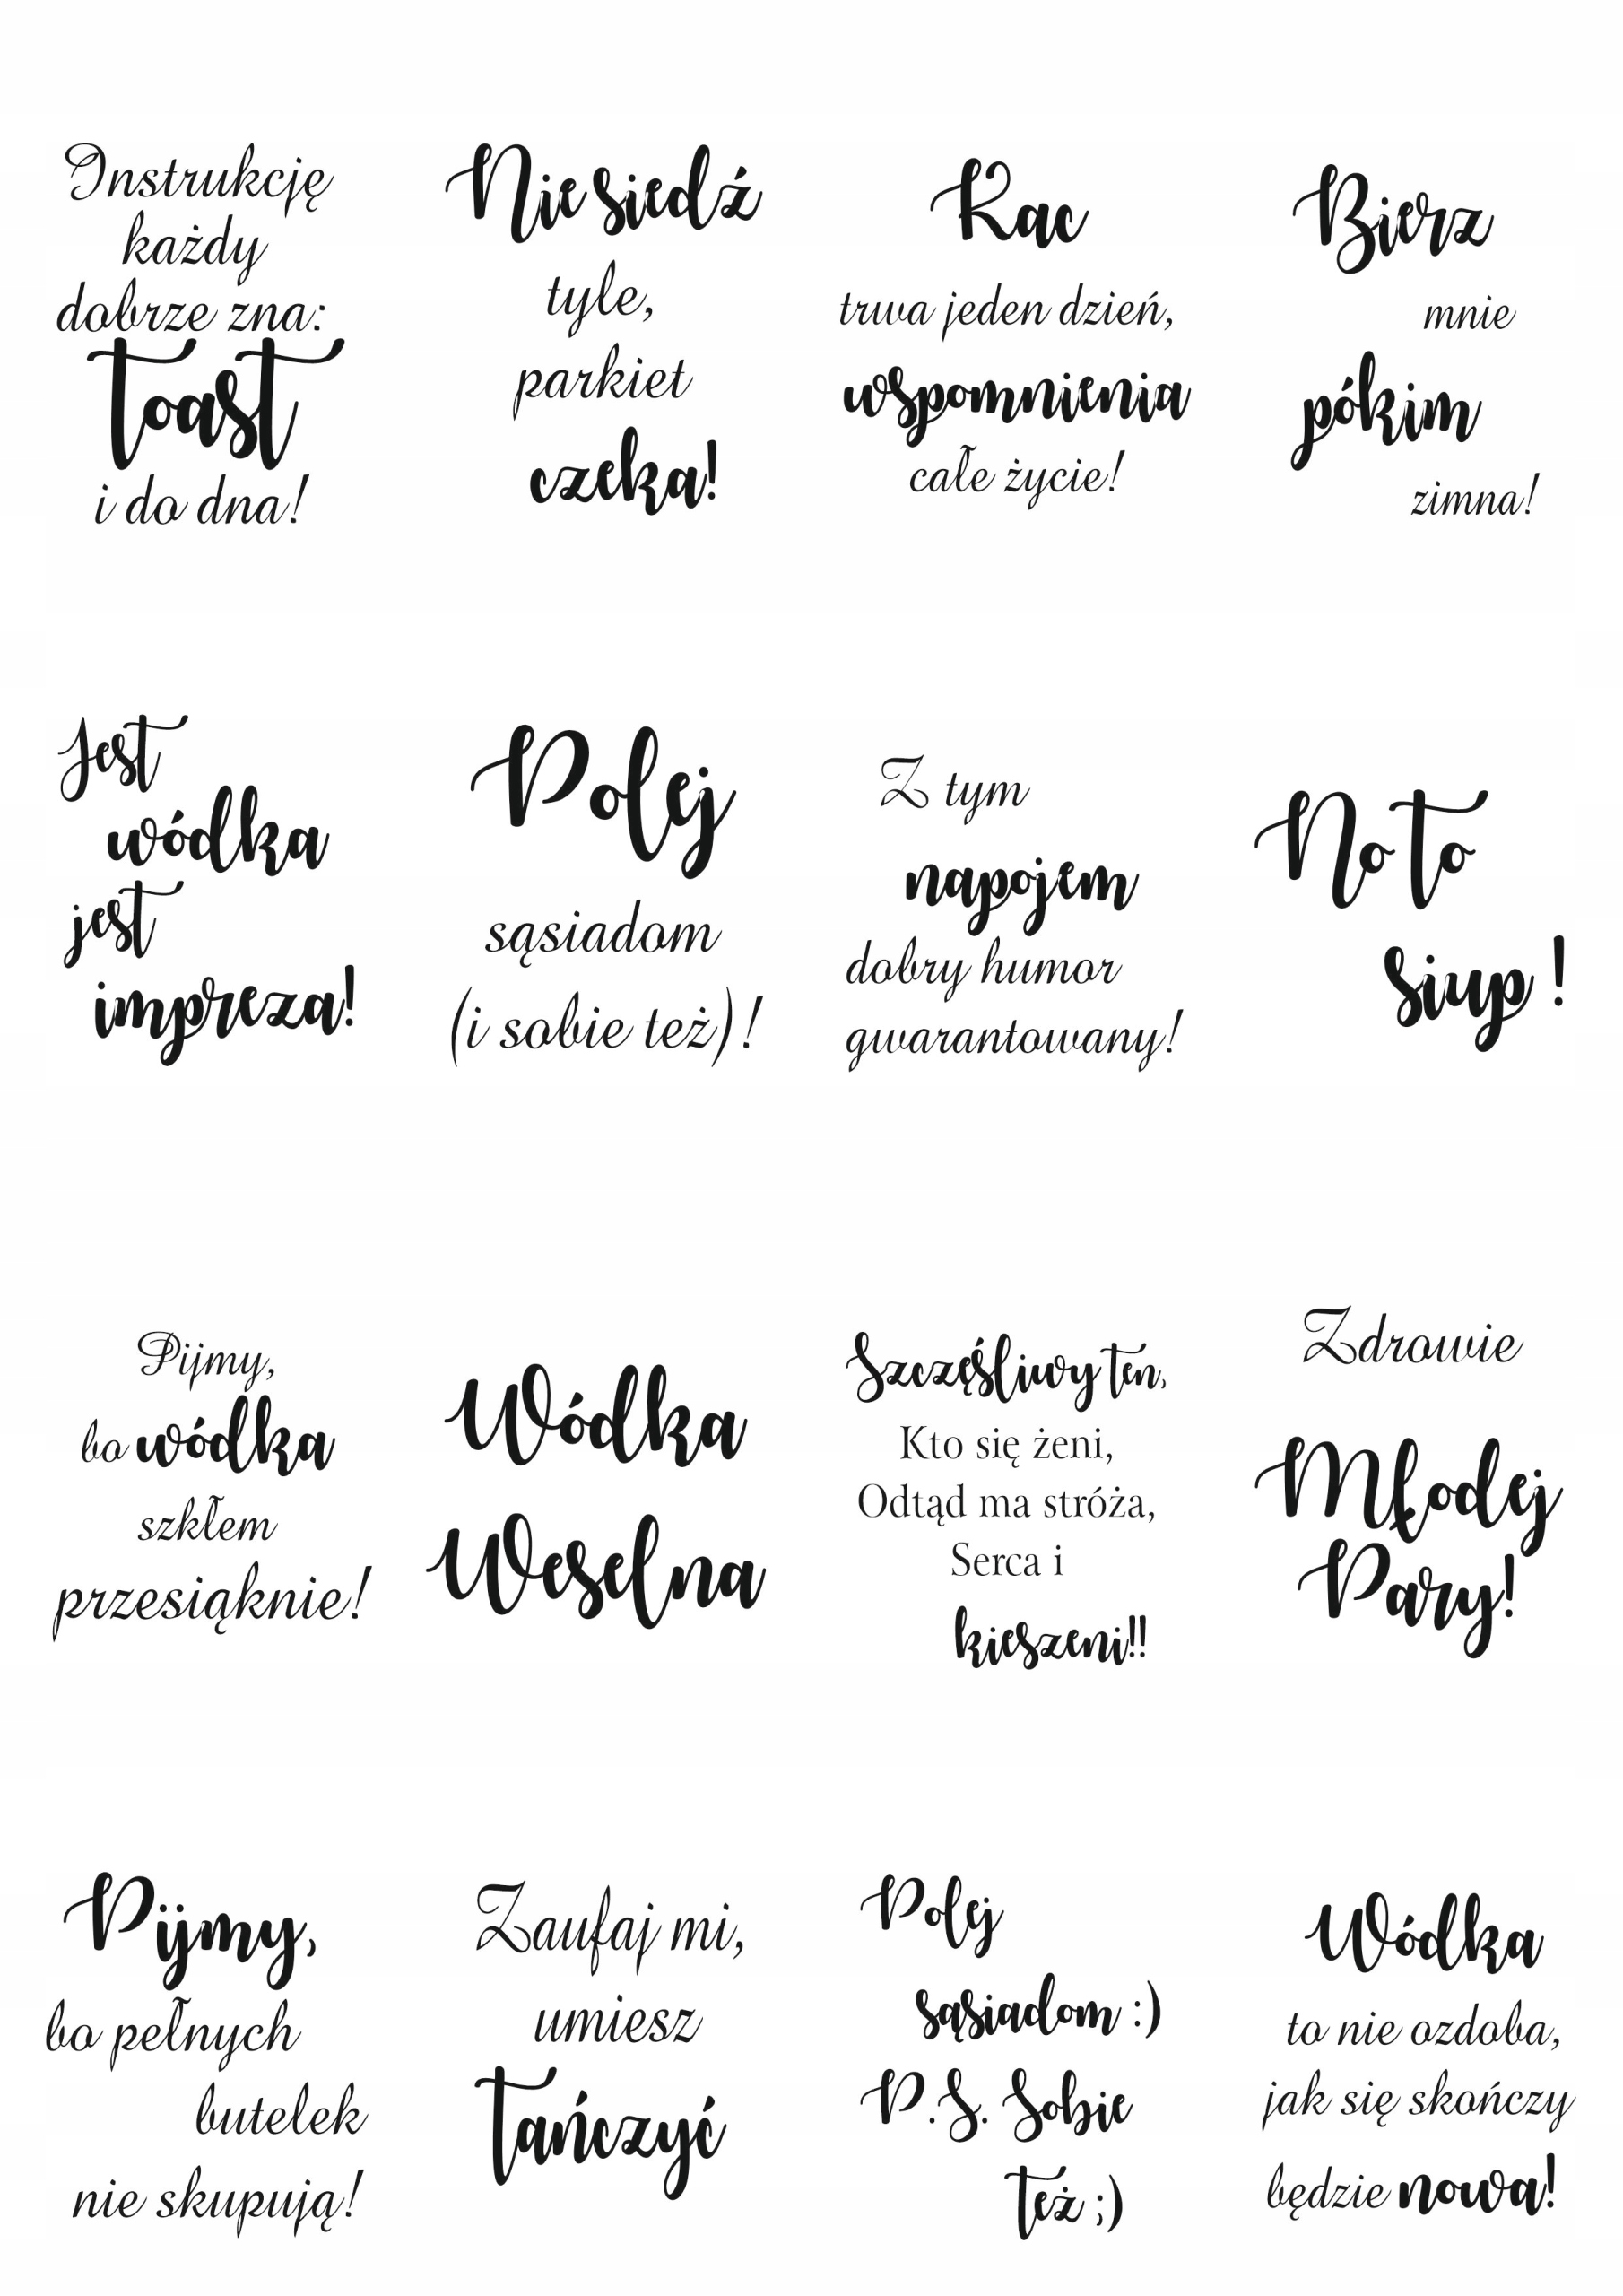 Instrukcję
każdy
dobrze zna:
toast
i do dna!
Nie siedź
tyle,
parkiet
czeka!
Kac
trwa jeden dzień,
wspomnienia
całe życie!
Bierz
mnie
pókim
zimna!
Jest
wódka
jest
impreza!
Polej
sąsiadom
(i sobie też)!
Z tym
napojem
dobry humor
gwarantowany!
No to
siup !
Pijmy,
bo wódka
szkłem
przesiąknie!
Wódka
Weselna
Szczęśliwy ten,
Kto się żeni,
Odtąd ma stróża,
Serca i
kieszeni!!
Zdrowie
Młodej
Pary!
Pijmy,
bo pełnych
butelek
nie skupują!
Zaufaj mi,
umiesz
tańczyć
Polej
sąsiadom :)
P.S. Sobie
też ;)
Wódka
to nie ozdoba,
jak się skończy
będzie nowa!